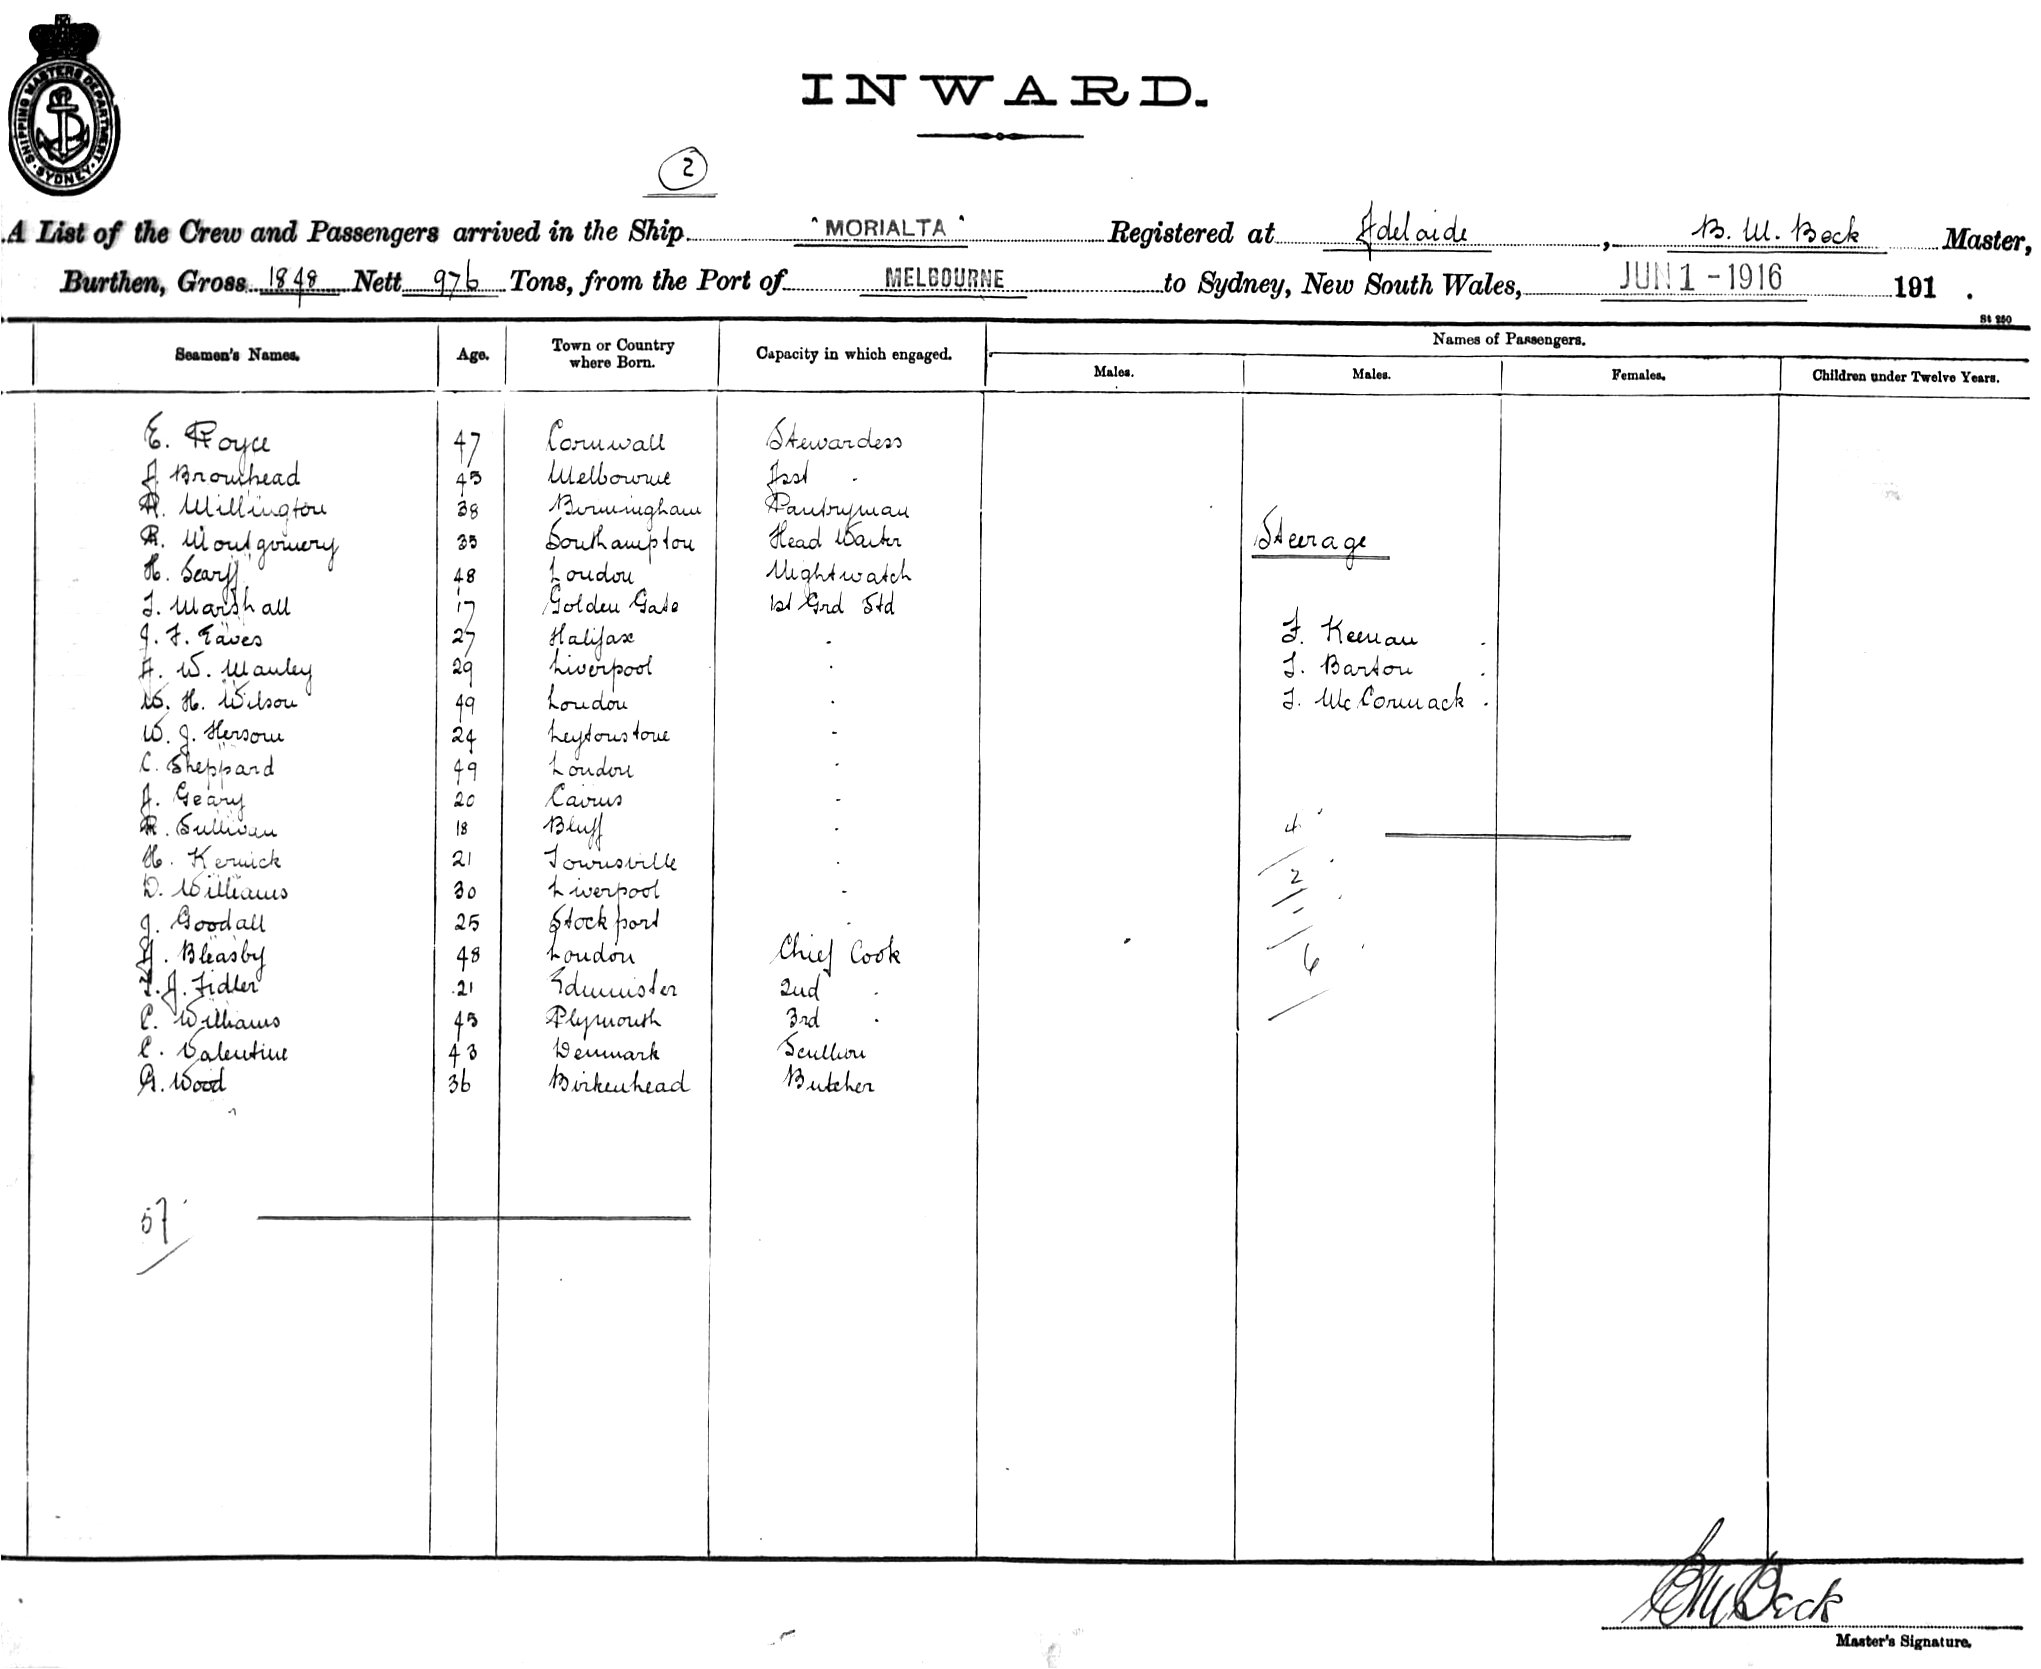 SHIPPING MASTERS DEPARTMENT · SYDNEY ·
INWARD.
2
A List of the Crew and Passengers arrived in the Ship "MORIALTA" Registered at Adelaide, B. M. Beck Master,
Burthen, Gross 1848 Nett 976 Tons, from the Port of MELBOURNE to Sydney, New South Wales, JUN 1 - 1916 191 .
St 250
Seamen's Names. Age. Town or Country where Born. Capacity in which engaged. Names of Passengers.
Males. Males. Females. Children under Twelve Years.
E. Royce 47 Cornwall Stewardess
A Bromhead 45 Melbourne Asst "
A. Millington 38 Birmingham Pantryman
R. Montgomery 35 Southampton Head Waiter
Steerage
H. Scarff 48 London Nightwatch
T. Marshall 17 Golden Gate 1st Grd Std
J. F. Eaves 27 Halifax " F. Keenan
A. W. Manley 29 Liverpool " T. Barton
W. H. Wilson 49 London " T. McCormack
W. J. Hersom 24 Leytonstone "
C. Sheppard 49 London "
J. Geary 20 Cairns "
R. Sullivan 18 Bluff " 4
H. Kernick 21 Townsville "
D. Williams 30 Liverpool " 2
J. Goodall 25 Stockport "
H. Bleasby 48 London Chief Cook 6
T. J. Fidler 21 2nd "
C. Williams 45 Plymouth 3rd "
C. Valentine 43 Denmark Scullion
G. Wood 36 Birkenhead Butcher
57
B M Beck
Master's Signature.